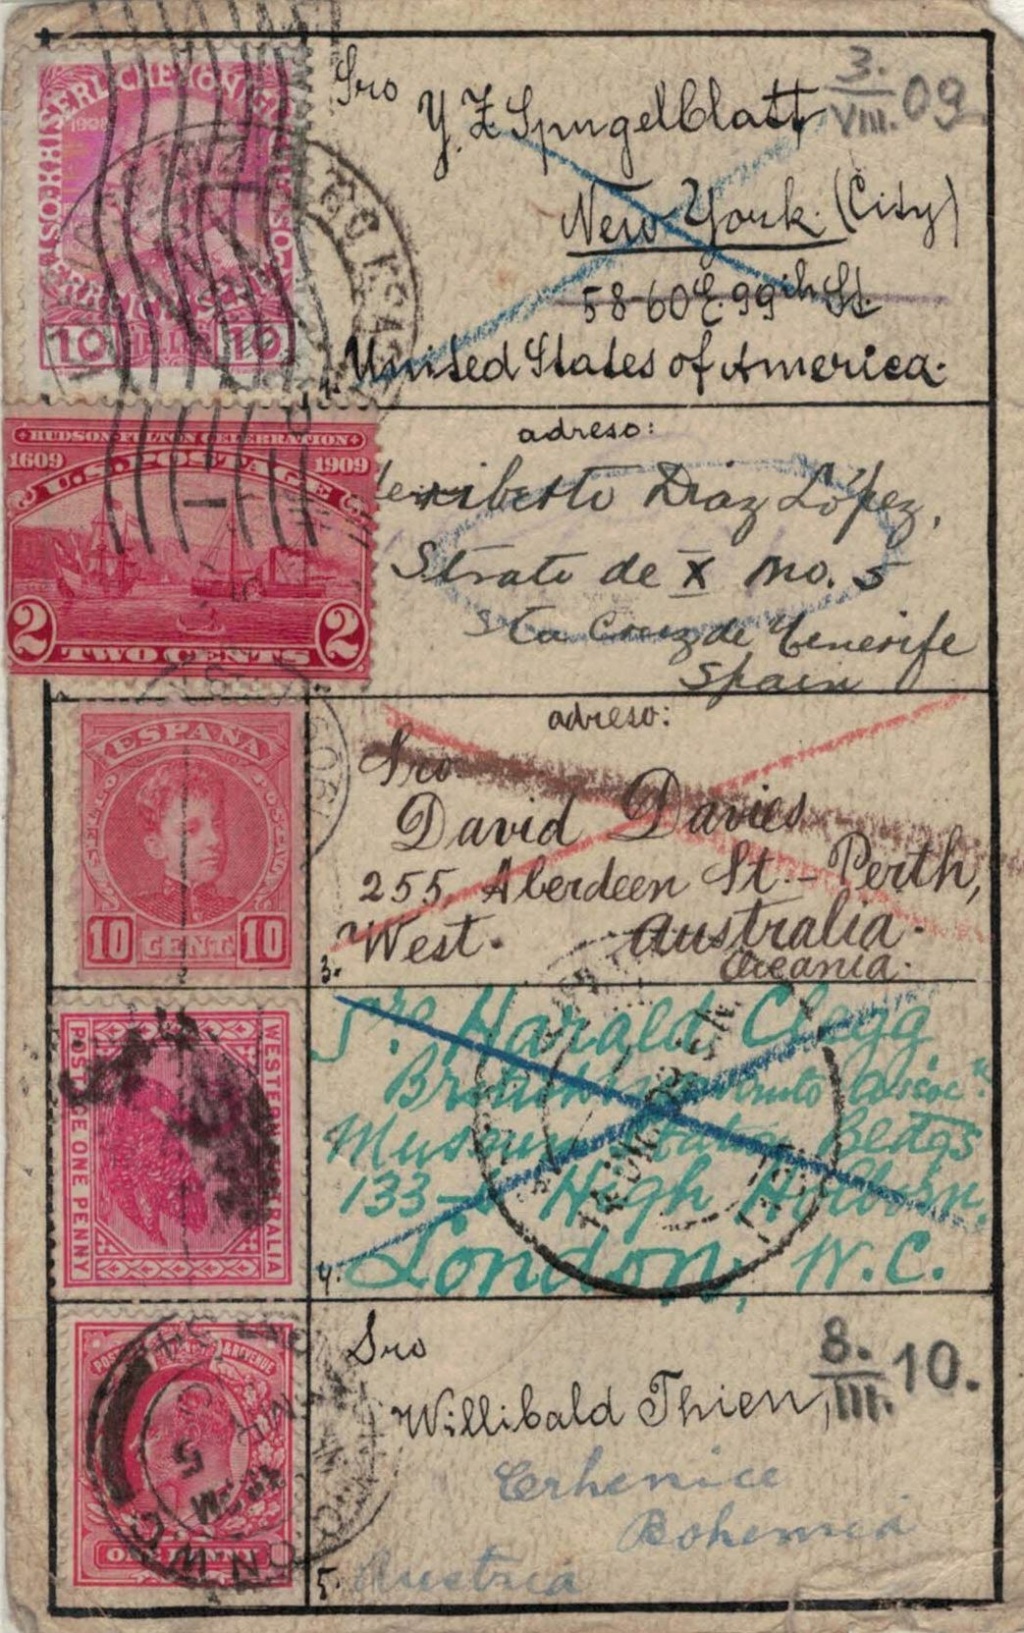 Sro
Y. Z. Spugelblatt
3.
VIII. 09
New York. (City)
58-60 E. 99th St.
1.
United States of America.
KAISERLICHE KÖNIGL
1908
10 HELLER 10
HUDSON-FULTON CELEBRATION
1609 1909
U.S. POSTAGE
2 2
TWO CENTS
adreso:
Heriberto Diaz López,
Strato de X no. 5
Sta Cruz de Tenerife
Spain
ESPAÑA
CORREOS
10 CENT. 10
adreso:
Sro
David Davies
255, Aberdeen St. – Perth,
West. Australia.
3.
Oceania.
WESTERN AUSTRALIA
POSTAGE ONE PENNY
Sro Harald Clegg
Assoc.
Museum Station Bldgs
133- High Holborn,
4.
London, W.C.
ONE PENNY
Sro
8.
III. 10.
Willibald Thien,
Erhenice
Bohemia
5.
Austria